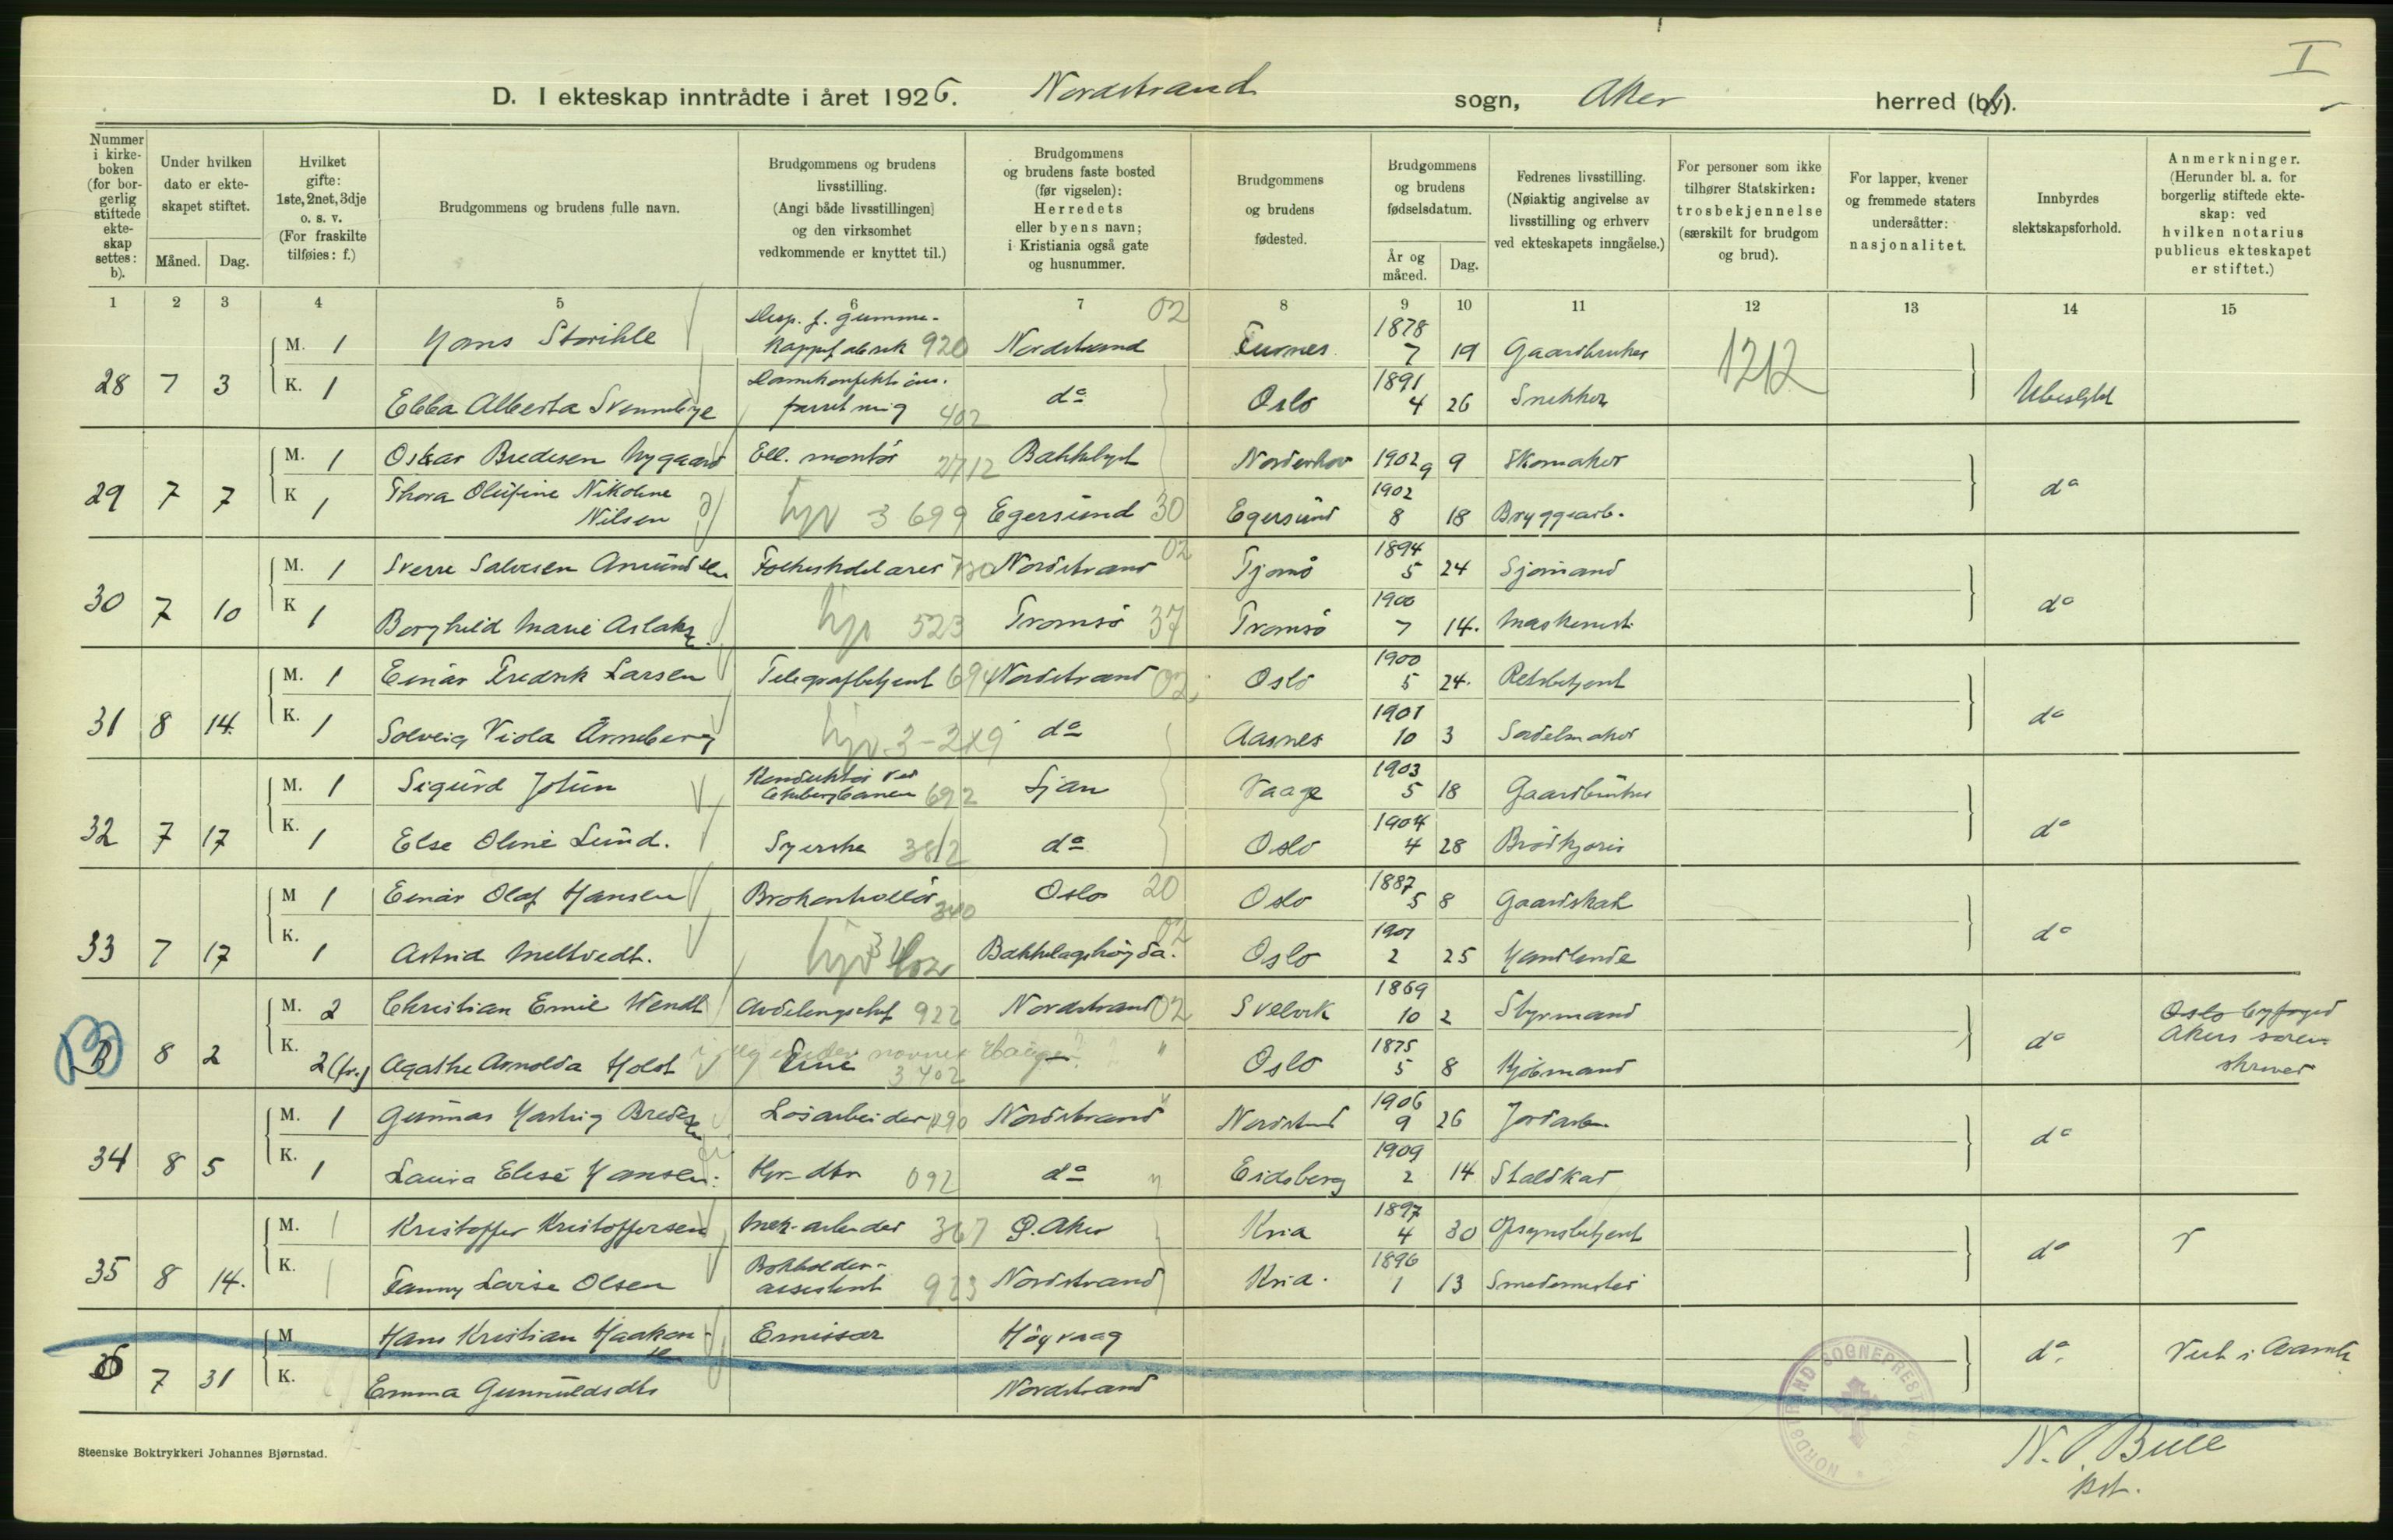 I
D. I ekteskap inntrådte i året 1926. Nordstrand sogn, Aker herred (by).
Nummer i kirke-boken (for bor-gerlig stiftede ekte-skap settes: b).
Under hvilken dato er ekte-skapet stiftet.
Måned. Dag.
Hvilket gifte: 1ste, 2net, 3dje o. s. v. (For fraskilte tilføies: f.)
Brudgommens og brudens fulle navn.
Brudgommens og brudens livsstilling. (Angi både livsstillingen og den virksomhet vedkommende er knyttet til.)
Brudgommens og brudens faste bosted (før vigselen): Herredets eller byens navn; i Kristiania også gate og husnummer.
Brudgommens og brudens fødested.
Brudgommens og brudens fødselsdatum.
År og måned. Dag.
Fedrenes livsstilling. (Nøiaktig angivelse av livsstilling og erhverv ved ekteskapets inngåelse.)
For personer som ikke tilhører Statskirken: trosbekjennelse (særskilt for brudgom og brud).
For lapper, kvener og fremmede staters undersåtter: nasjonalitet.
Innbyrdes slektskapsforhold.
Anmerkninger. (Herunder bl. a. for borgerlig stiftede ekte-skap: ved hvilken notarius publicus ekteskapet er stiftet.)
1 2 3 4 5 6 7 8 9 10 11 12 13 14 15
02
28 7 3 M. 1 Hans Storihle Disp. f. gummi-kappefabrik 920 Nordstrand Furnes 1878 7 19 Gaardbruker 1212
K. 1 Ebba Alberta Svennebye 402 do Oslo 1891 4 26 Snekker Ubeslekt
29 7 7 M. 1 Oskar Bredesen Nygaard Ell. montør 2712 Bækkelaget Norderhov 1902 9 9 Skomaker
K 1 Thora Olufine Nikoline Nilsen hjv 3 699 Egersund 30 Egersund 1902 8 18 Bryggearb. do
30 7 10 M. 1 Sverre Salvesen Amundsen Folkeskolelærer 730 Nordstrand 02 Tjømø 1894 5 24 Sjømand
K 1 Borghild Marie Aslaksen hjv 523 Tromsø 37 Tromsø 1900 7 14. Maskinist do
31 8 14. M. 1 Einar Fredrik Larsen Telegrafbetjent 694 Nordstrand 02 Oslo 1900 5 24. Retsbetjent
K. 1 Solveig Viola Anneberg hjv 3-219 do Aasnes 1901 10 3 Sadelmaker do
32 7 17 M. 1 Sigurd Jotun Konduktør ved Ekebergbanen 692 Ljan Vaage 1903 5 18 Gaardbruker
K. 1 Else Oline Lund. Syerske 3812 do Oslo 1904 4 28 Brødkjører do
33 7 17 M 1 Einar Olaf Hansen Brokontrollør 340 Oslo 20 Oslo 1887 5 8 Gaardskarl
K. 1 Astrid Meltvedt. hjv 3 402 Bækkelagshøgda. 02 Oslo 1901 2 25 Handlende do
B 8 2 M. 2 Christian Emil Wendt Avdelingschef 922 Nordstrand 02 Svelvik 1869 10 2 Styrmand Oslo byfoged
K. 2 (fr.) Agathe Arnolda Holst Frue 3 402 " Oslo 1875 5 8 Kjøbmand do Akers sorenskriver
34 8 5 M. 1 Gunnar Hartvig Bredesen Løsarbeider 1290 Nordstrand " Nordstrand 1906 9 26 Jordarb.
K. 1 Laura Elise Hansen. Hjv-dtr 092 do " Eidsberg 1909 2 14 Staldkar do
35 8 14. M. 1 Kristoffer Kristoffersen Mek-arbeider 367 Ø. Aker Kria 1897 4 30 Opsynsbetjent
K. 1 Fanny Lovise Olsen Bokholder-assistent 923 Nordstrand Kria. 1896 1 13 Smedemester do
36 7 31 M Hans Kristian Haakonsen Emissær Høgvaag
K. Emma Gunnuldsdtr Nordstrand do.
NORDSTRAND SOGNEPREST
Steenske Boktrykkeri Johannes Bjørnstad.
N. Bull